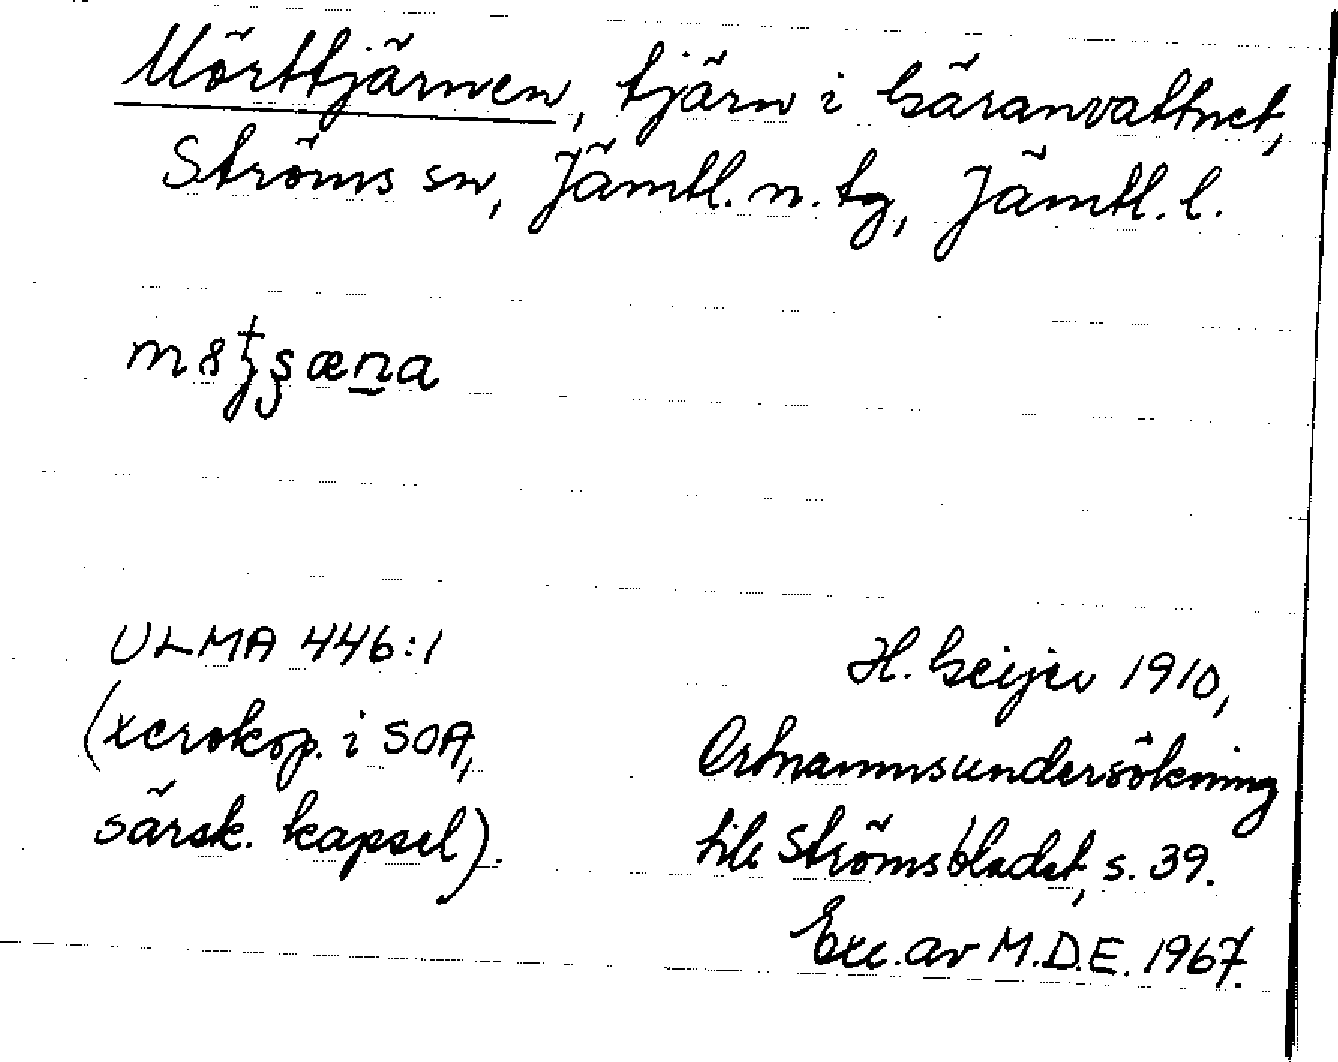 Mörttjärnen, tjärn i Gäranvattnet,
Ströms sn, Jämtl. n. tg, Jämtl. l.
ULMA 446:1
(xerokop. i SOA,
särsk. kapsel).
H. Geijer 1910,
Ortnamnsundersökning
till Strömsbladet, s. 39.
Exc. av M.D.E. 1967.